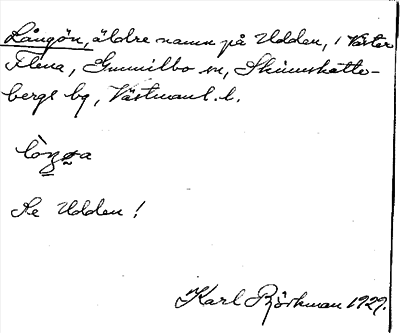 Långön, äldre namn på Udden, i Väster
Flena, Gunnilbo sn, Skinnskatte-
bergs bg, Västmanl. l.
lòŋga
Se Udden!
Karl Björkman 1927.